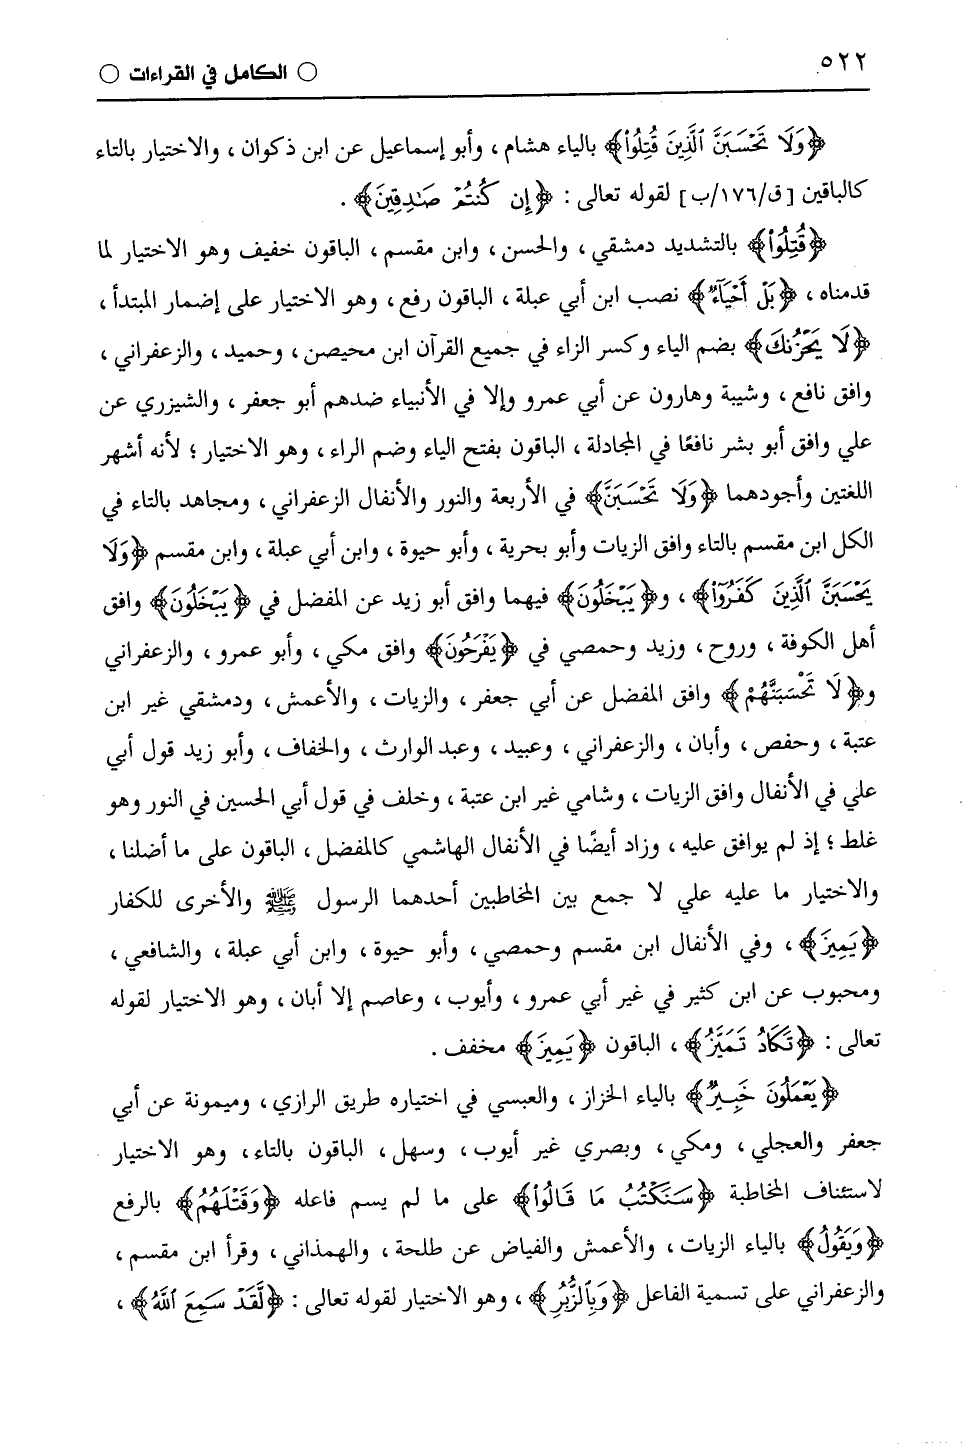 ٥٢٢
○ الكامل في القراءات ○
﴿وَلَا تَحْسَبَنَّ ٱلَّذِينَ قُتِلُوا۟﴾ بالياء هشام ، وأبو إسماعيل عن ابن ذكوان ، والاختيار بالتاء
كالباقين [ق/١٧٦/ب] لقوله تعالى : ﴿إِن كُنتُمْ صَـٰدِقِينَ﴾ .
﴿قُتِلُوا۟﴾ بالتشديد دمشقي ، والحسن ، وابن مقسم ، الباقون خفيف وهو الاختيار لما
قدمناه ، ﴿بَلْ أَحْيَآءٌ﴾ نصب ابن أبي عبلة ، الباقون رفع ، وهو الاختيار على إضمار المبتدأ ،
﴿لَا يَحْزُنكَ﴾ بضم الياء وكسر الزاء في جميع القرآن ابن محيصن ، وحميد ، والزعفراني ،
وافق نافع ، وشيبة وهارون عن أبي عمرو وإلا في الأنبياء ضدهم أبو جعفر ، والشيزري عن
علي وافق أبو بشر نافعًا في المجادلة ، الباقون بفتح الياء وضم الراء ، وهو الاختيار ؛ لأنه أشهر
اللغتين وأجودهما ﴿وَلَا تَحْسَبَنَّ﴾ في الأربعة والنور والأنفال الزعفراني ، ومجاهد بالتاء في
الكل ابن مقسم بالتاء وافق الزيات وأبو بحرية ، وأبو حيوة ، وابن أبي عبلة ، وابن مقسم ﴿وَلَا
يَحْسَبَنَّ ٱلَّذِينَ كَفَرُوٓا۟﴾ ، و﴿يَبْخَلُونَ﴾ فيهما وافق أبو زيد عن المفضل في ﴿يَبْخَلُونَ﴾ وافق
أهل الكوفة ، وروح ، وزيد وحمصي في ﴿يَفْرَحُونَ﴾ وافق مكي ، وأبو عمرو ، والزعفراني
و﴿لَا تَحْسَبَنَّهُمْ﴾ وافق المفضل عن أبي جعفر ، والزيات ، والأعمش ، ودمشقي غير ابن
عتبة ، وحفص ، وأبان ، والزعفراني ، وعبيد ، وعبد الوارث ، والخفاف ، وأبو زيد قول أبي
علي في الأنفال وافق الزيات ، وشامي غير ابن عتبة ، وخلف في قول أبي الحسين في النور وهو
غلط ؛ إذ لم يوافق عليه ، وزاد أيضًا في الأنفال الهاشمي كالمفضل ، الباقون على ما أضلنا ،
والاختيار ما عليه علي لا جمع بين المخاطبين أحدهما الرسول ﷺ والأخرى للكفار
﴿يَمِيزَ﴾ ، وفي الأنفال ابن مقسم وحمصي ، وأبو حيوة ، وابن أبي عبلة ، والشافعي ،
ومحبوب عن ابن كثير في غير أبي عمرو ، وأيوب ، وعاصم إلا أبان ، وهو الاختيار لقوله
تعالى : ﴿تَكَادُ تَمَيَّزُ﴾ ، الباقون ﴿يَمِيزَ﴾ مخفف .
﴿يَعْمَلُونَ خَبِيرٌ﴾ بالياء الخزاز ، والعبسي في اختياره طريق الرازي ، وميمونة عن أبي
جعفر والعجلي ، ومكي ، وبصري غير أيوب ، وسهل ، الباقون بالتاء ، وهو الاختيار
لاستئناف المخاطبة ﴿سَنَكْتُبُ مَا قَالُوا۟﴾ على ما لم يسم فاعله ﴿وَقَتْلَهُمُ﴾ بالرفع
﴿وَيَقُولُ﴾ بالياء الزيات ، والأعمش والفياض عن طلحة ، والهمذاني ، وقرأ ابن مقسم ،
والزعفراني على تسمية الفاعل ﴿وَبِٱلزُّبُرِ﴾ ، وهو الاختيار لقوله تعالى : ﴿لَّقَدْ سَمِعَ ٱللَّهُ﴾ ،